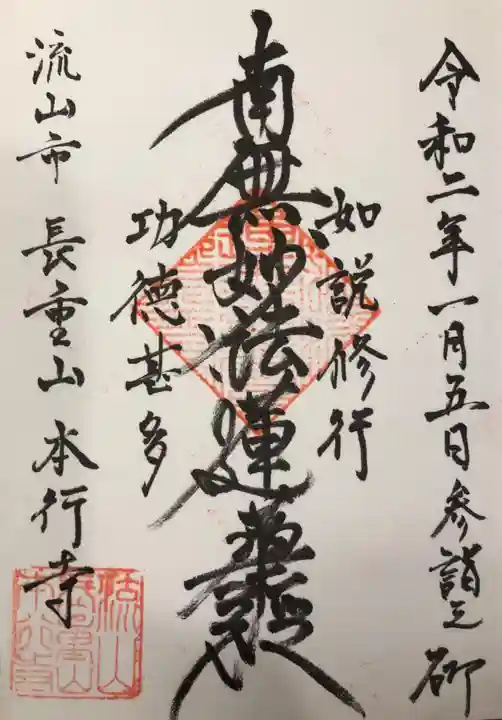 令和二年一月五日参詣之砌
如説修行
南無妙法蓮華経
功徳甚多
流山市 長重山 本行寺